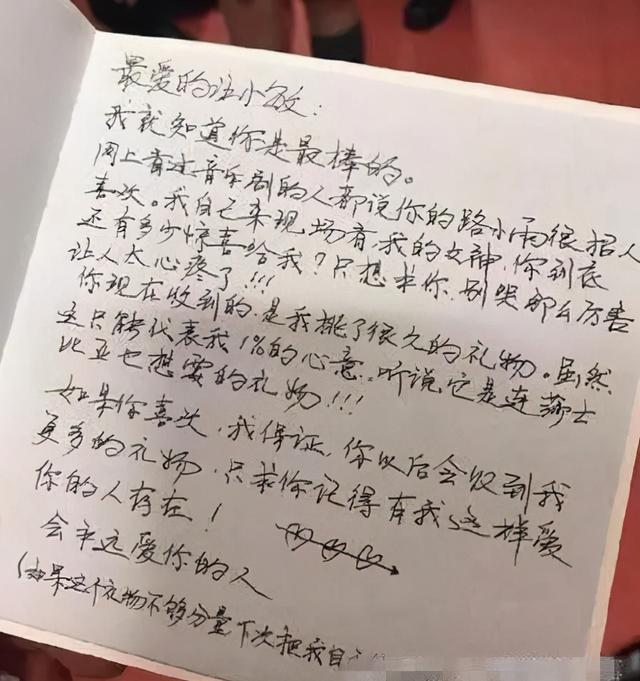 最爱的汪小敏：
我就知道你是最棒的。
网上看过音乐剧的人都说你的路小雨很招人
喜欢。我自己来现场看，我的女神，你到底
还有多少惊喜给我？只想求你，别哭那么厉害
让人太心疼了!!!
你现在收到的，是我挑了很久的礼物。虽然
这只能代表我1%的心意，听说，它是连莎士
比亚也想要的礼物!!!
如果你喜欢，我保证，你以后会收到我
更多的礼物，只求你记得有我这样爱
你的人存在！
会永远爱你的人
(如果这个礼物不够分量下次把我自